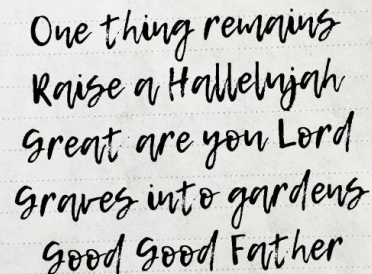 One thing remains
Raise a Hallelujah
Great are you Lord
Graves into gardens
Good Good Father